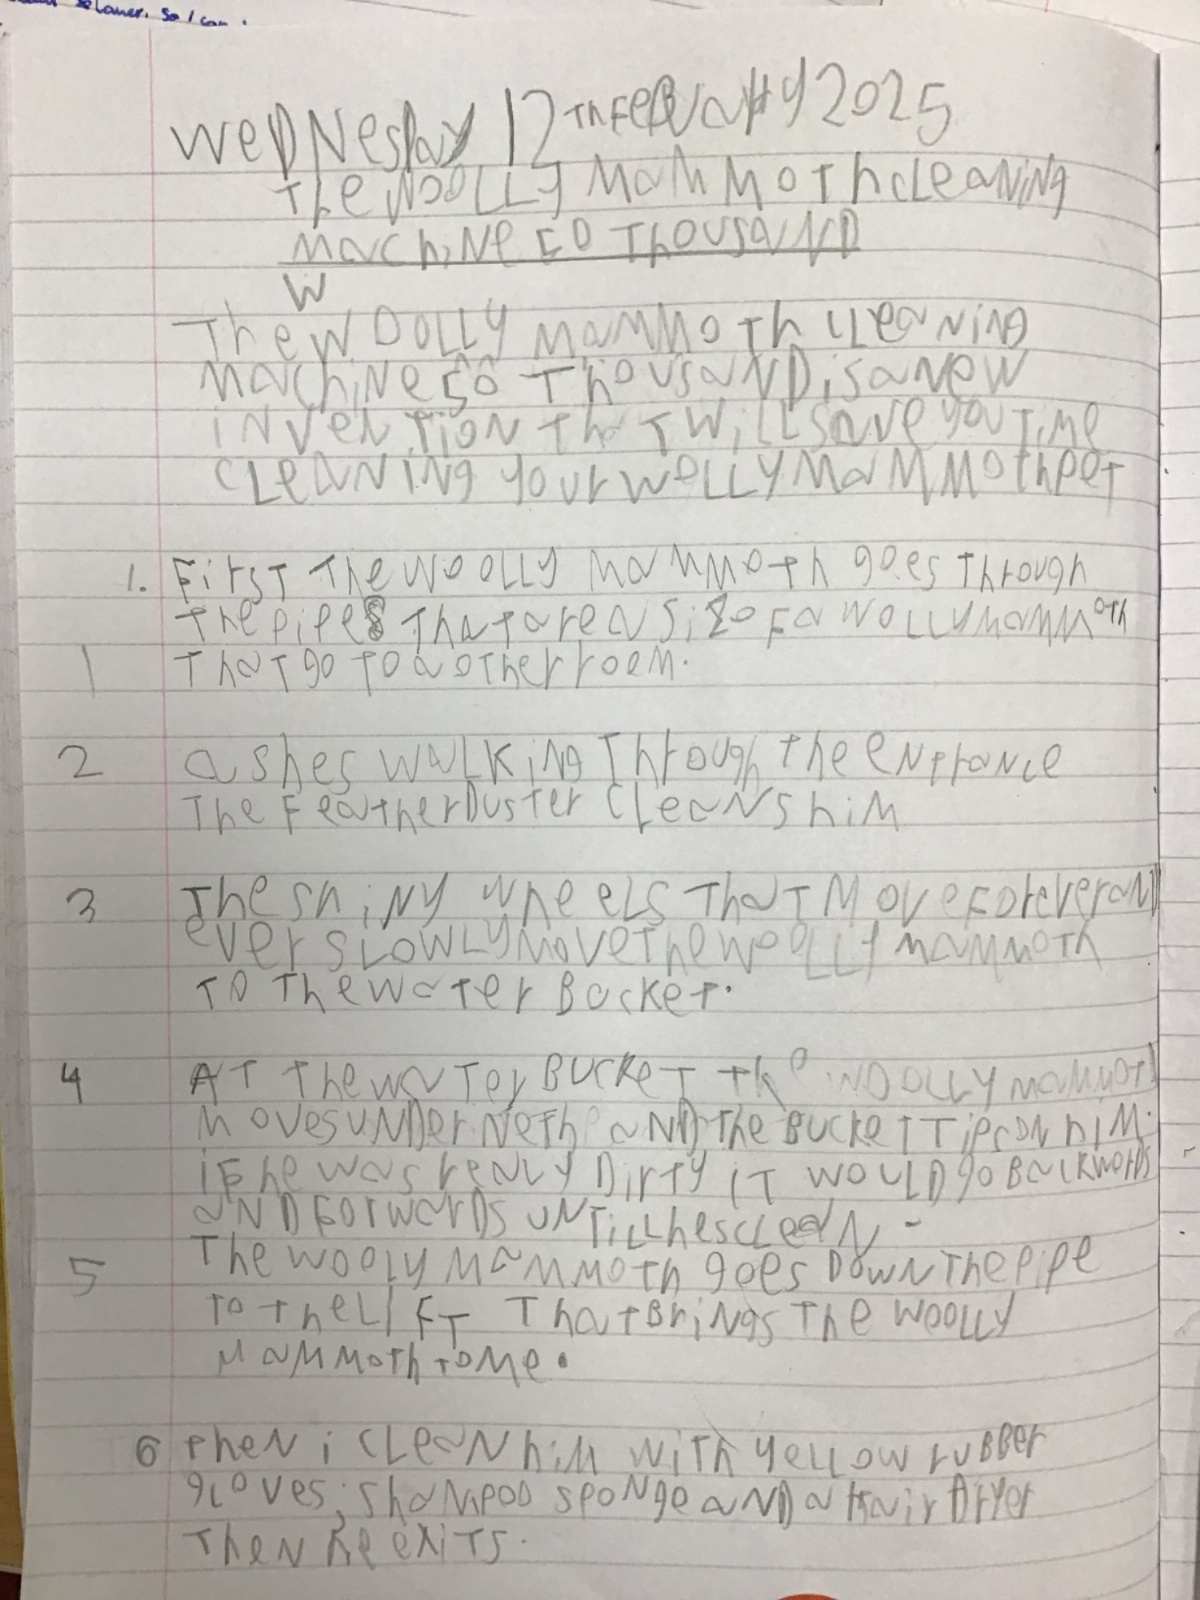 selamer. So I can.
Wednesday 12th February 2025
The Woolly Mammoth cleaning
machine 50 thousand
W
The Woolly mammoth cleaning
machine 50 thousand is a new
invention that will save you time
cleaning your wolly mammoth pet
1. First the woolly mammoth goes through
the pipes that are a size of a wolly mammoth
1 that go to a other room.
2 as hes walking through the entrance
the feather Duster cleans him
3 The shiny wheels that move forever and
ever slowly move the woolly mammoth
to the water Bucket.
4 At the water Bucket the woolly mammoth
moves underneth and the Bucket tips on him.
if he was realy Dirty it would go Backwords
and forwards untill hes clean -
5 The wooly mammoth goes Down the pipe
to the lift that Brings the woolly
mammoth to me.
6 then i clean him with yellow rubber
gloves, shampoo sponge and a hair Dryer
then he exits.